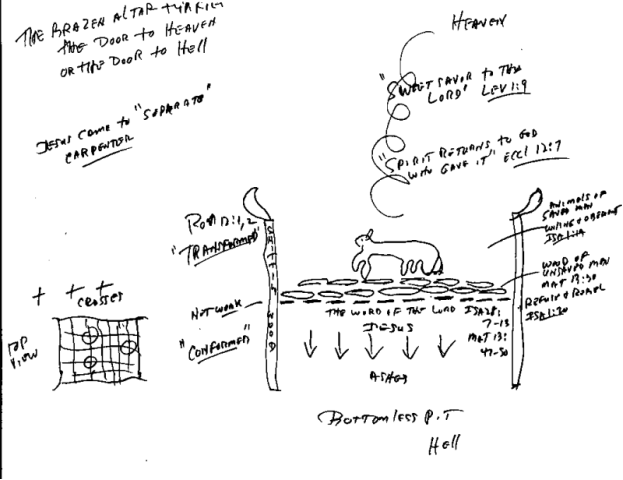 THE BRAZEN ALTAR
THE DOOR TO HEAVEN
OR THE DOOR TO HELL
JESUS CAME TO "SEPARATE"
CARPENTER
HEAVEN
"SWEET SAVOR TO THE
LORD" LEV 1:9
"SPIRIT RETURNS TO GOD
WHO GAVE IT" ECCL 12:7
ROM 12:1,2
"TRANSFORMED"
SHITTIM WOOD
ANIMALS OF
SAVED MAN
WILLING & OBEDIENT
WOOD OF
UNSAVED MAN
MAT 13:30
REFUSE & REBEL
ISA 1:20
NETWORK
THE WORD OF THE LORD ISA 28:
7-13
JESUS
MAT 13:
47-50
"CONFORMED"
ASHES
CROSSES
TOP
VIEW
BOTTOMLESS PIT
HELL